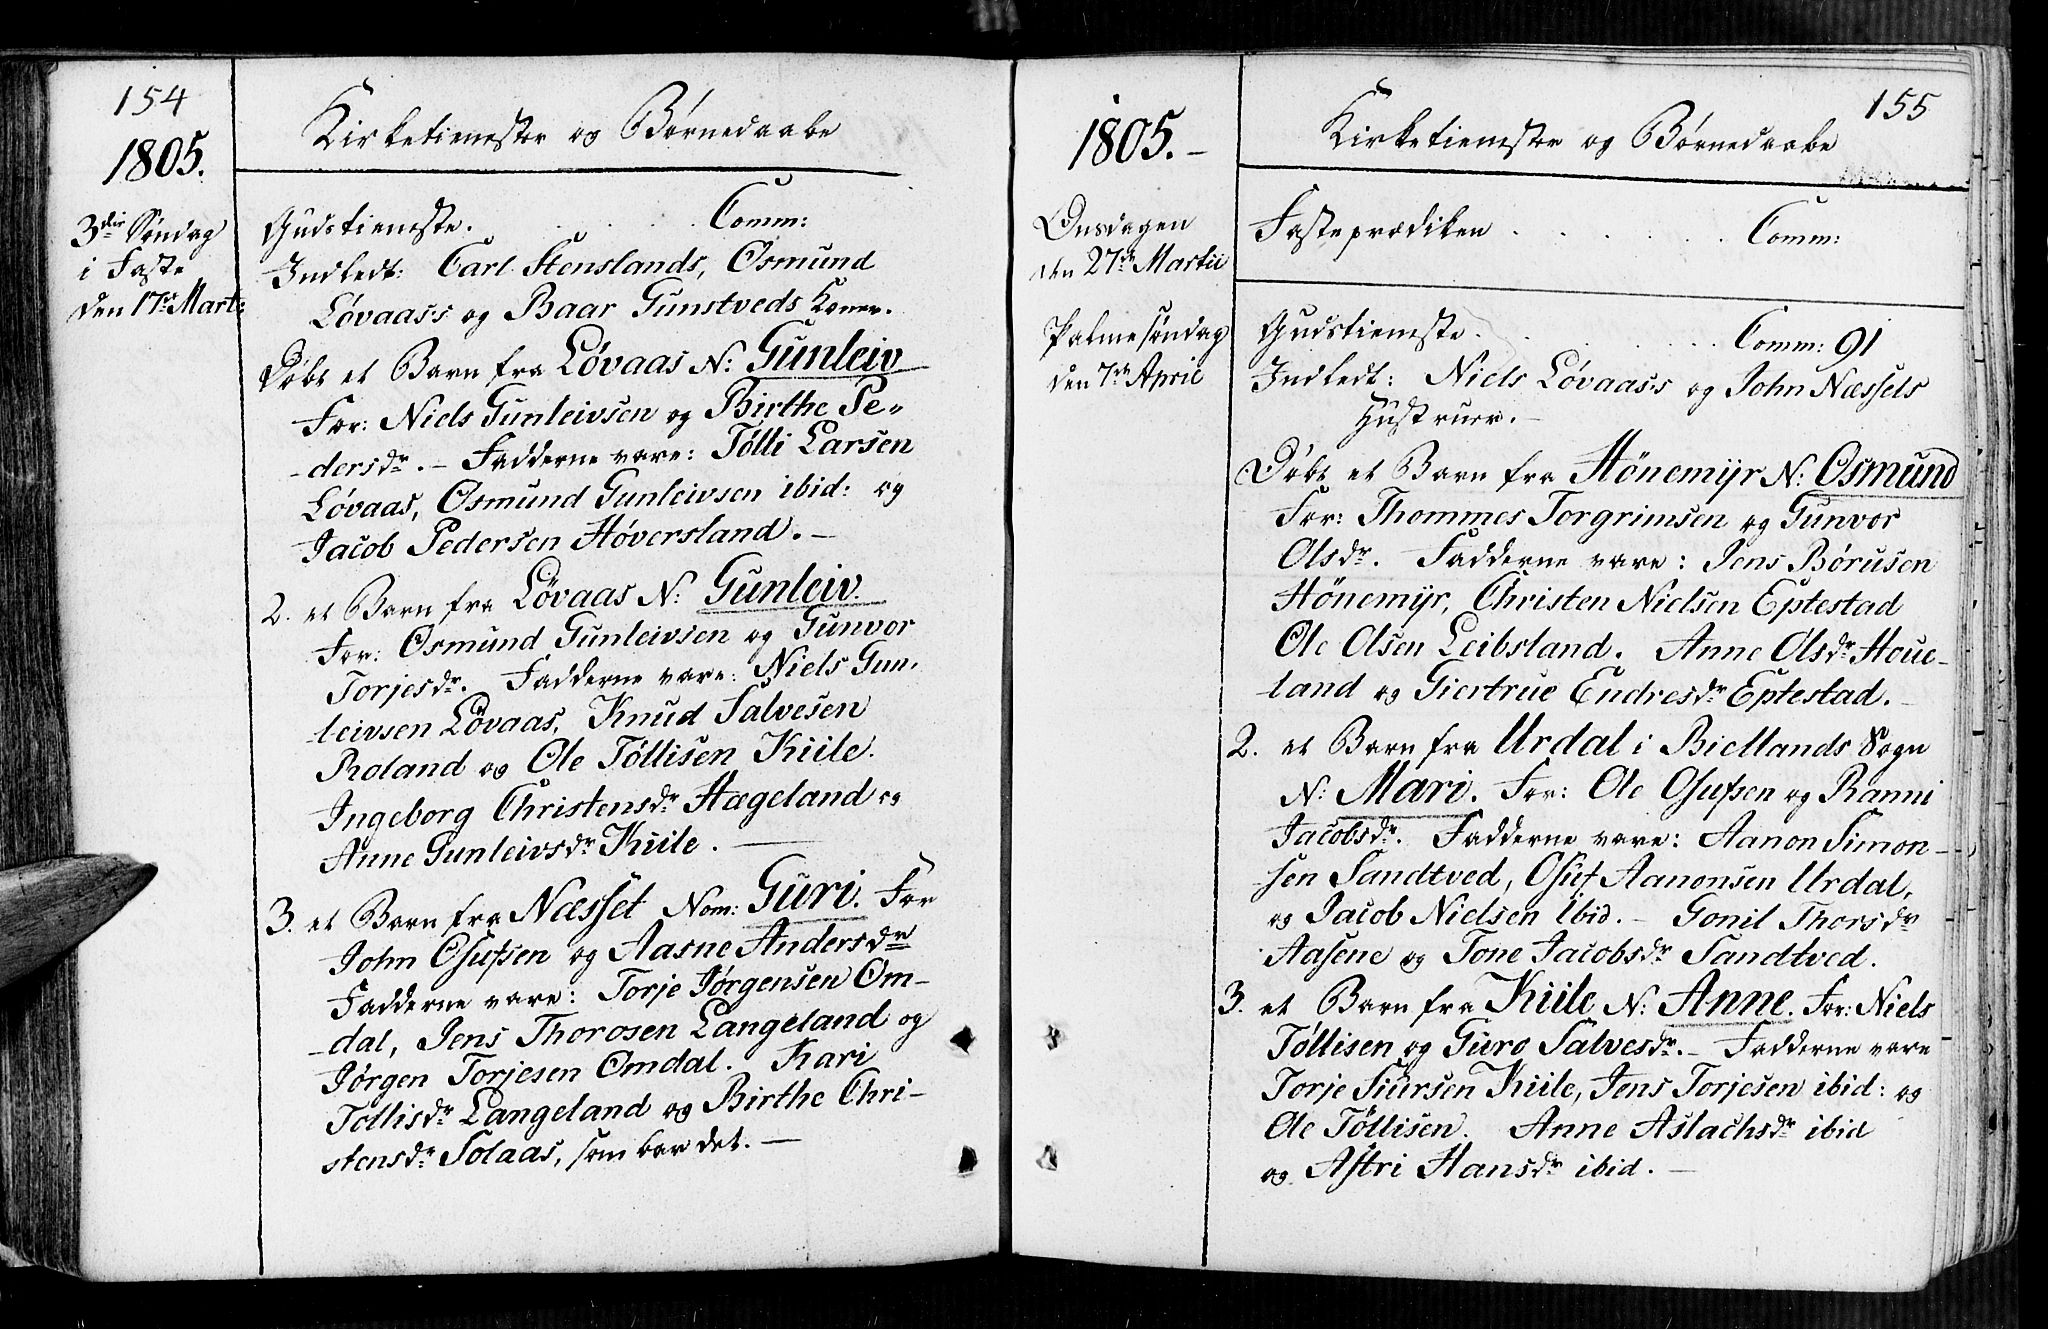 154
1805.
Kirketieneste og Børnedaabe
3die Søndag
i Faste
den 17de Marti:
Gudstieneste. . . . . Comm:
Indledt: Carl Stenslands, Osmund
Løvaass og Baar Gunstveds Koner.
Døbt et Barn fra Løvaas N: Gunleiv
For: Niels Gunleivsen og Birthe Pe-
-dersdr. - Fadderne vare: Tølli Larsen
Løvaas, Osmund Gunleivsen ibid: og
Jacob Pedersen Høversland. -
2. et Barn fra Løvaas N: Gunleiv.
For: Osmund Gunleivsen og Gunvor
Torjesdr. Fadderne vare: Niels Gun-
leivsen Løvaas, Knud Salvesen
Roland og Ole Tøllisen Kiile.
Ingeborg Christensdr Hægeland og
Anne Gunleivsdr Kiile. -
3. et Barn fra Næsset Nom: Guri. For
John Osufsen og Aasne Andersdr
Fadderne vare: Torje Jørgensen Om-
-dal, Jens Thorosen Langeland og
Jørgen Torjesen Omdal. Kari
Tollisdr Langeland og Birthe Chri-
stensdr Solaas, som bar det. -
155
1805. -
Kirketieneste og Børnedaabe
Onsdagen
den 27de Martii
Fasteprædiken . . . . . . Comm:
Palmesøndag
den 7de April
Gudstieneste. . . . . . . Comm: 91
Indledt: Niels Løvaass og John Næssets
Hustruer. -
Døbt et Barn fra Hönemijr N: Osmund
For: Thommes Torgrimsen og Gunvor
Olsdr. Fadderne vare: Jens Børusen
Hönemijr, Christen Nielsen Eptestad
Ole Olsen Leibsland. Anne Olsdr Houe-
land og Giertrue Endresdr Eptestad. -
2. et Barn fra Urdal i Biellands Sogn
N: Mari. For: Ole Osufsen og Ranni
Jacobsdr. Fadderne vare: Aanon Simon-
sen Sandtved, Osuf Aanonsen Urdal,
og Jacob Nielsen Ibid. - Gonil Thorsdr
Aasene og Tone Jacobsdr Sandtved.
3. et Barn fra Kiile N: Anne. For: Niels
Tøllisen og Guro Salvesdr. - Fadderne vare
Torje Siursen Kiile, Jens Torjesen ibid: og
Ole Tøllisen. Anne Aslachsdr ibid
og Astri Hansdr ibid. -